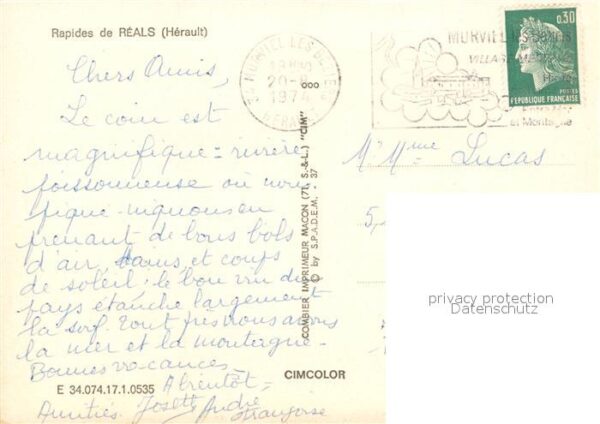 Rapides de RÉALS (Hérault)
Chers Amis,
Le coin est
magnifique = rivière
poissonneuse où nous
pique-niquons en
prenant de bons bols
d'air, bains et coups
de soleil; le bon vin du
pays étanche largement
la soif. Tout près nous avons
la mer et la montagne.
Bonnes vacances.
A bientôt =
Amitiés. Josette André
Françoise
E 34.074.17.1.0535
CIMCOLOR
COMBIER IMPRIMEUR MACON (71, S.-&-L.) "CIM"
© by S.P.A.D.E.M. - 37
20-8
1974
HERAULT
MURVIEL LES BEZIERS
VILLAGE
et Montagne
0,30
POSTES
REPUBLIQUE FRANÇAISE
Mr Mme Lucas
5,
privacy protection
Datenschutz